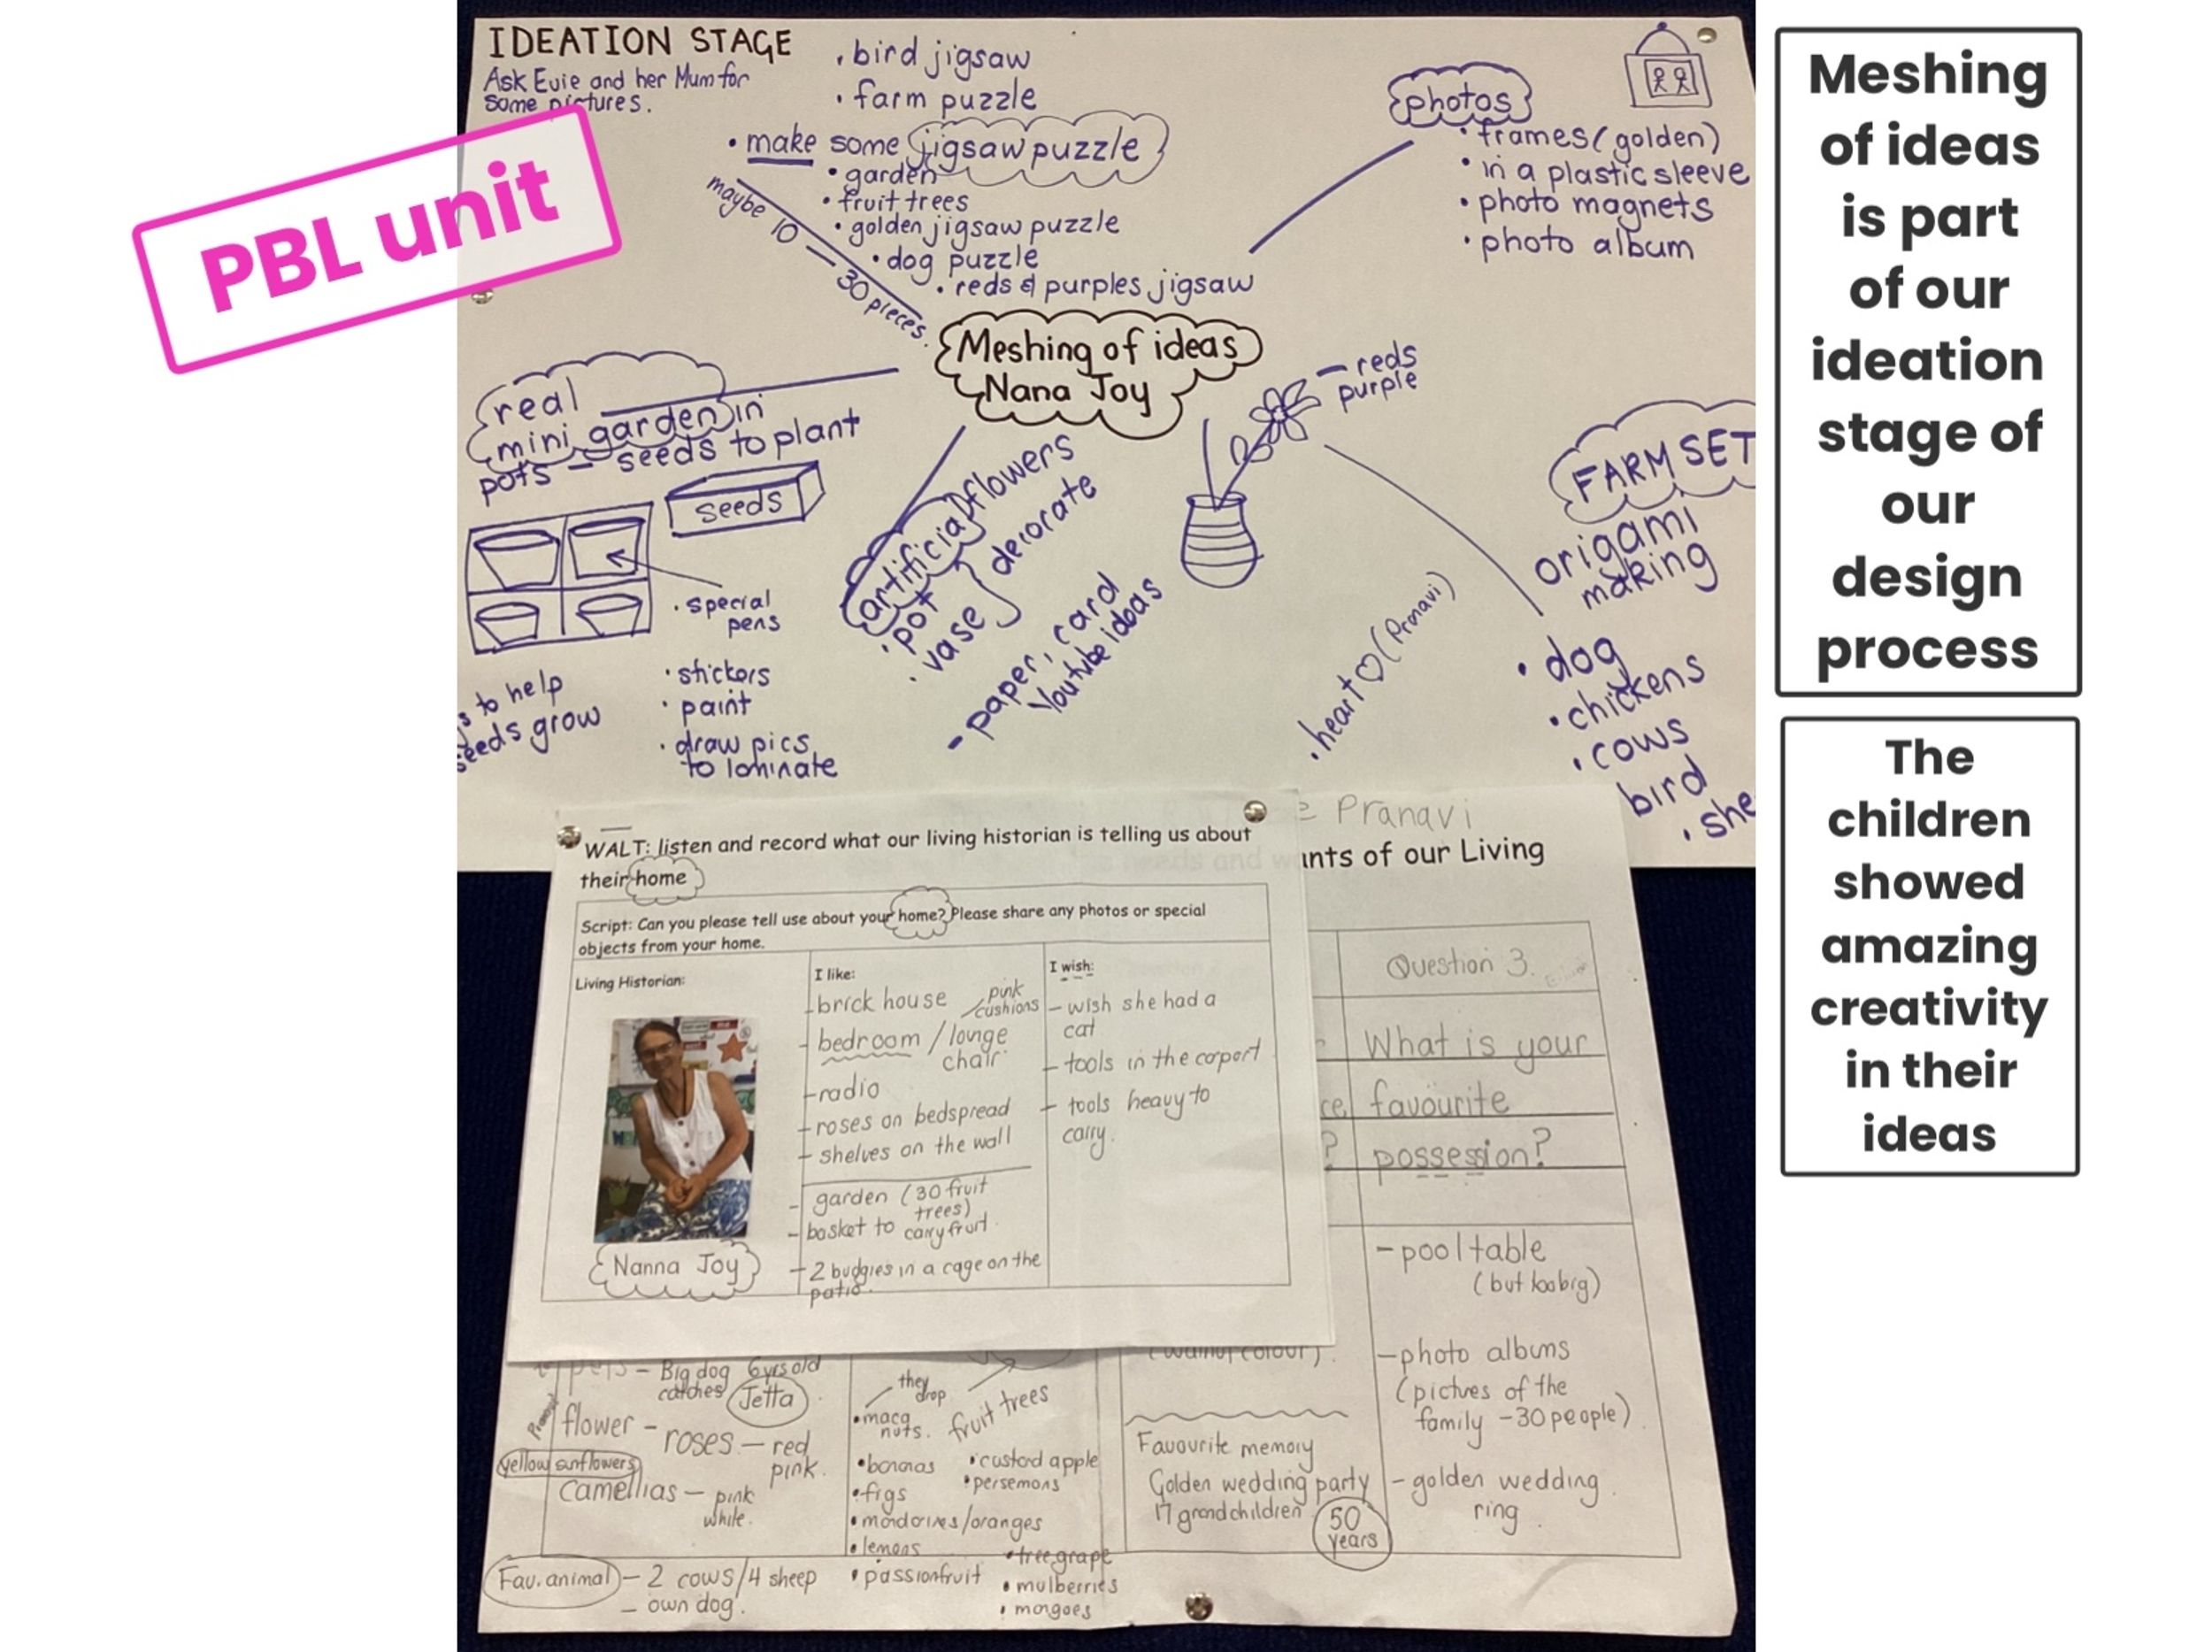 PBL unit
IDEATION STAGE
Ask Evie and her Mum for
some pictures.
• bird jigsaw
• farm puzzle
• make some jigsaw puzzle
• garden
• fruit trees
• golden jigsaw puzzle
• dog puzzle
• reds & purples jigsaw
maybe 10 — 30 pieces.
photos
• frames (golden)
• in a plastic sleeve
• photo magnets
• photo album
Meshing of ideas
Nana Joy
real
mini garden in
pots – seeds to plant
seeds
• special
pens
• stickers
• paint
• draw pics
to laminate
to help
seeds grow
artificial flowers
• pot
• vase
decorate
– paper, card
Youtube ideas
– reds
purple
• heart ♡ (Pranavi)
FARM SET
origami
making
• dog
• chickens
• cows
bird
• she
WALT: listen and record what our living historian is telling us about
their home
Script: Can you please tell use about your home? Please share any photos or special
objects from your home.
Living Historian:
Nanna Joy
I like:
– brick house / pink
cushions
– bedroom / longe
chair
– radio
– roses on bedspread
– shelves on the wall
– garden (30 fruit
trees)
– basket to carry fruit.
– 2 budgies in a cage on the
patio.
I wish:
– wish she had a
cat
– tools in the coport
– tools heavy to
carry.
Pranavi
ants of our Living
Question 3.
What is your
favourite
possession?
– pool table
(but too big)
– photo albums
(pictures of the
family – 30 people)
– golden wedding
ring.
pets – Big dog 6yrs old
catches Jetta
flower – roses – red
pink.
yellow sunflowers
camellias – pink
white.
Fav. animal – 2 cows/4 sheep
– own dog.
they
drop
fruit trees
• maca
nuts.
• bananas
• figs
• mandarines/oranges
• lemons
• passionfruit
• custard apple
• persemons
• tree grape
• mulberries
• mangoes
(walnut colour).
Favourite memory
Golden wedding party
17 grandchildren
50
years
Meshing
of ideas
is part
of our
ideation
stage of
our
design
process
The
children
showed
amazing
creativity
in their
ideas